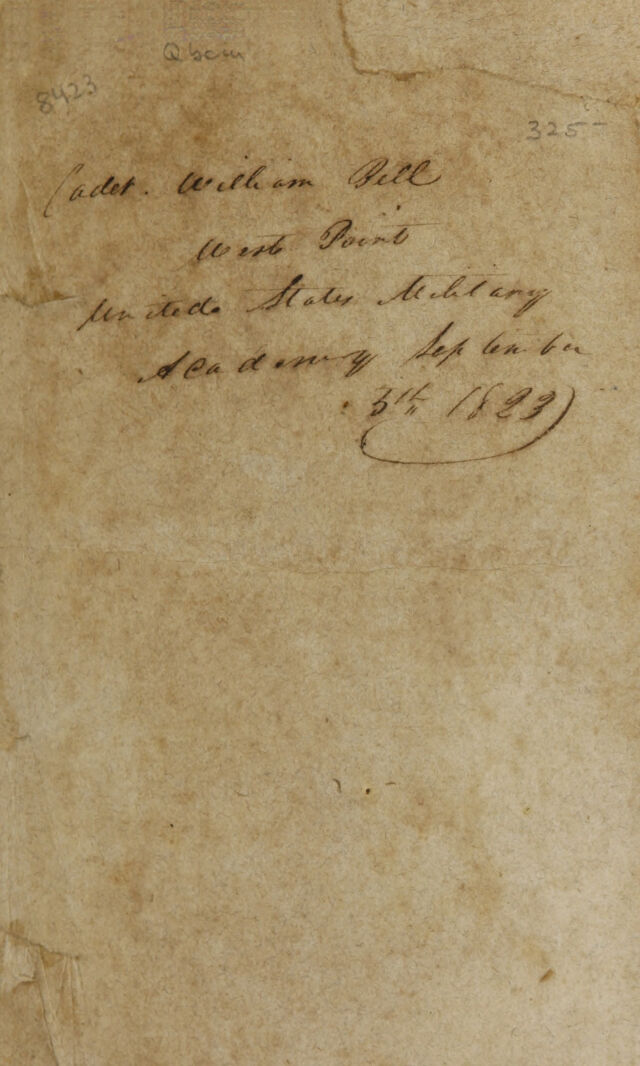 8423
325-
Cadet. William Bell
West Point
United States Military
Academy September
5th 1823